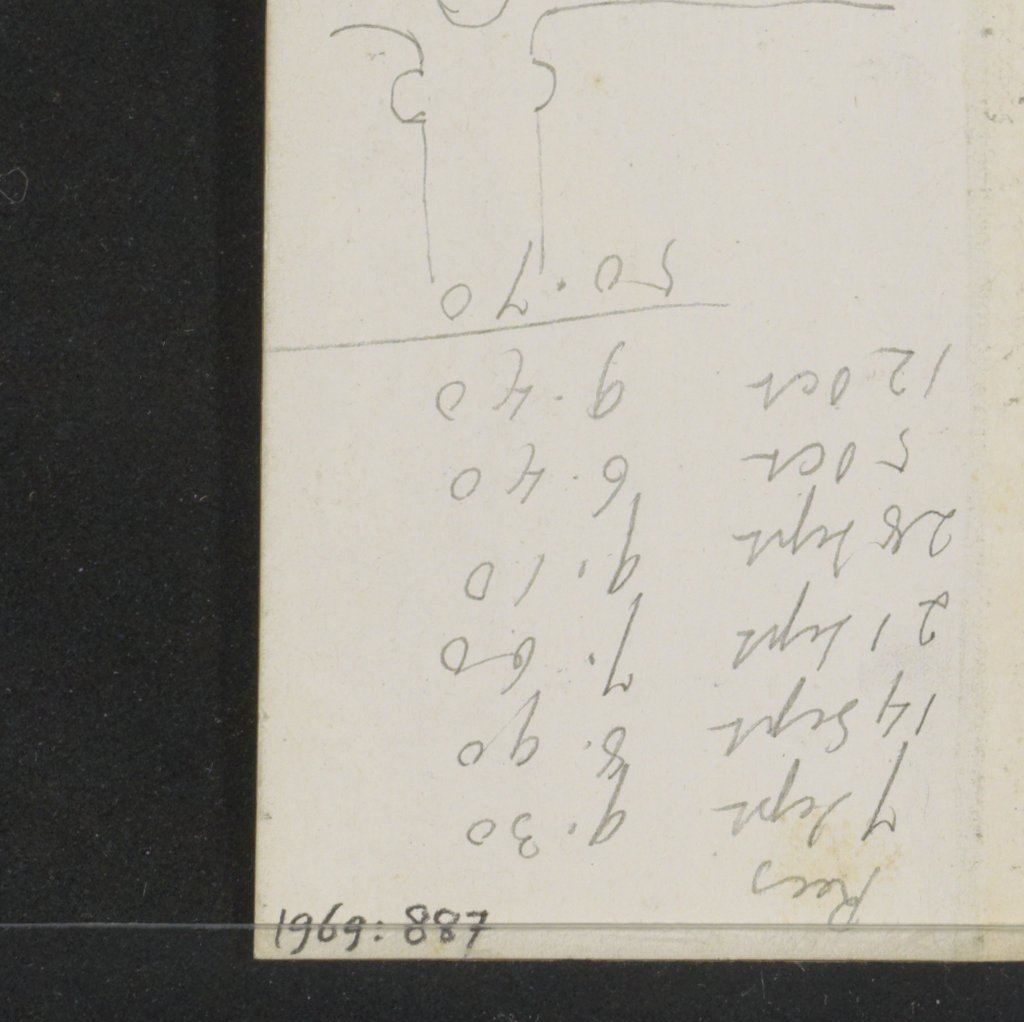 Rees
7 Sept 9.30
14 Sept 8.90
21 Sept 7.60
28 Sept 9.10
5 Oct 6.40
12 Oct 9.40
50.70
1969:887